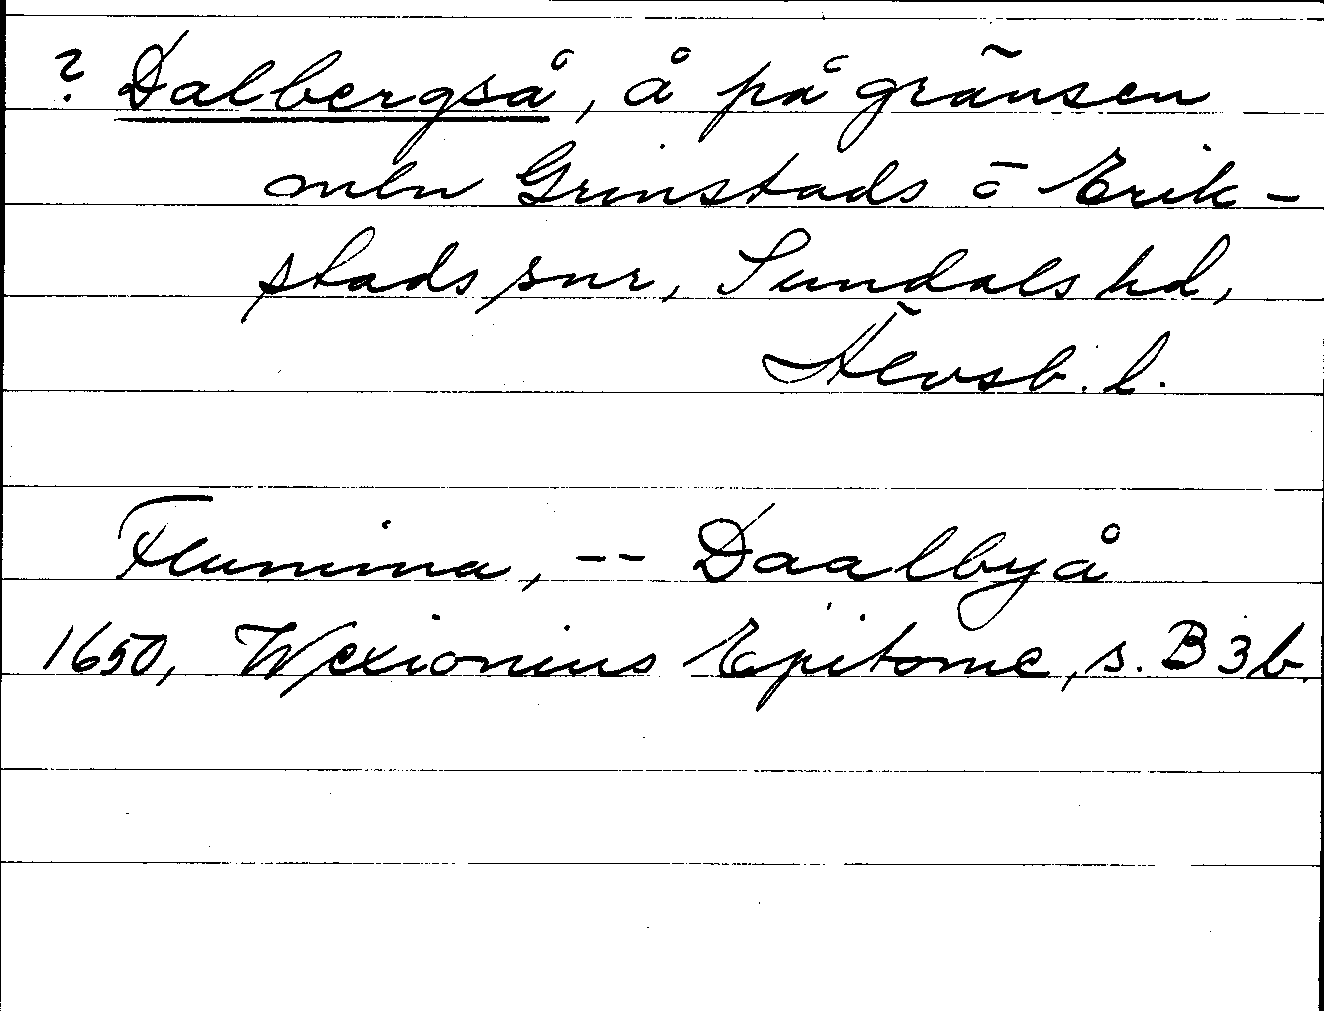 ? Dalbergså, å på gränsen
mln Grinstads o Erik-
stads snr, Sundals hd,
Älvsb. l.
Flumina, -- Daalbyå
1650, Wexionius Epitome, s. B3b.